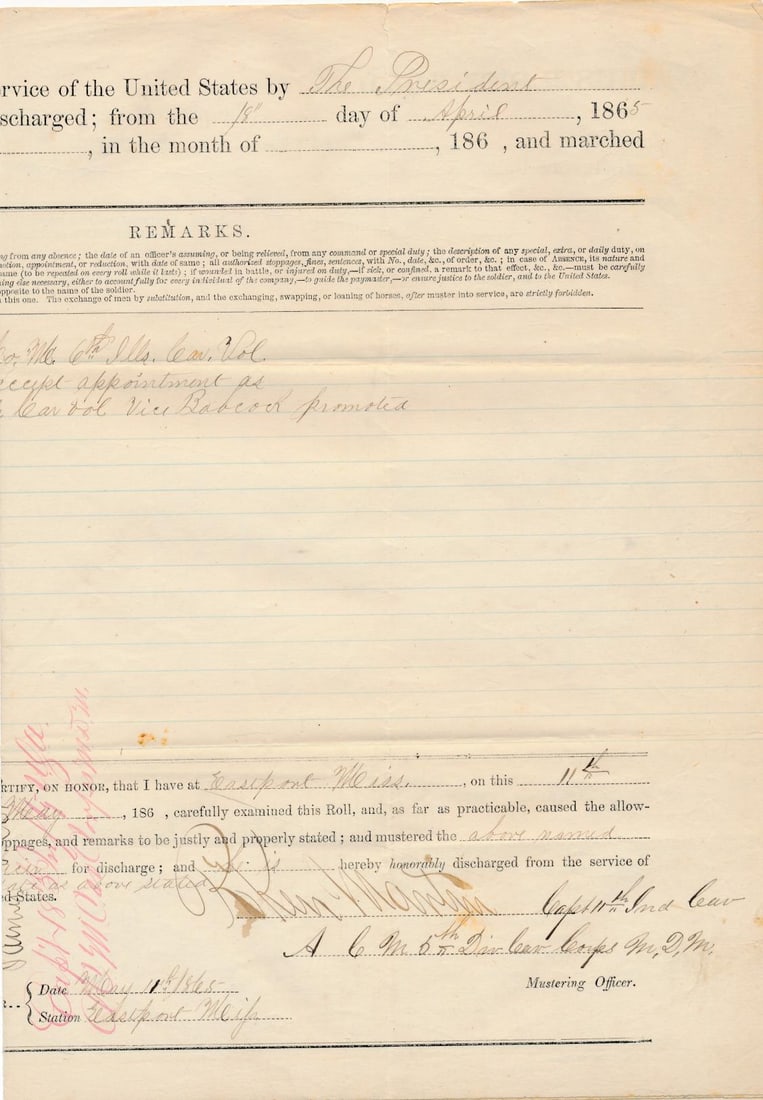 rvice of the United States by The President
scharged; from the 18" day of April, 1865
, in the month of , 186 , and marched
REMARKS.
ng from any absence; the date of an officer's assuming, or being relieved, from any command or special duty; the description of any special, extra, or daily duty, on
motion, appointment, or reduction, with date of same; all authorized stoppages, fines, sentences, with No., date, &c., of order, &c.; in case of ABSENCE, its nature and
name (to be repeated on every roll while it lasts); if wounded in battle, or injured on duty,—if sick, or confined, a remark to that effect, &c., &c.—must be carefully
hing else necessary, either to account fully for every individual of the company,—to guide the paymaster,—or ensure justice to the soldier, and to the United States.
opposite to the name of the soldier.
n this one. The exchange of men by substitution, and the exchanging, swapping, or loaning of horses, after muster into service, are strictly forbidden.
Co. M. 6th Ills. Cav. Vol.
accept appointment as
Cav Vol Vice Babcock promoted
RTIFY, ON HONOR, that I have at Eastport Miss. , on this 11th
May , 186 , carefully examined this Roll, and, as far as practicable, caused the allow-
oppages, and remarks to be justly and properly stated; and mustered the above named
for discharge; and he is hereby honorably discharged from the service of
as above stated
d States.
Martin Capt 11th Ind Cav
A C M 5th Div Cav Corps M. D. M.
Mustering Officer.
Date May 11th 1865
Station Eastport Miss